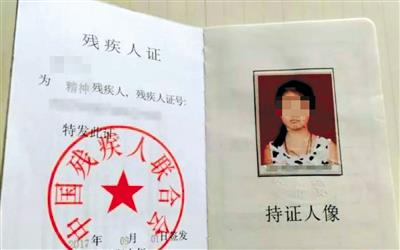 残疾人证
为
精神残疾人，残疾人证号：
特发此证
中国残疾人联合会
2017年09月01日签发
持证人像